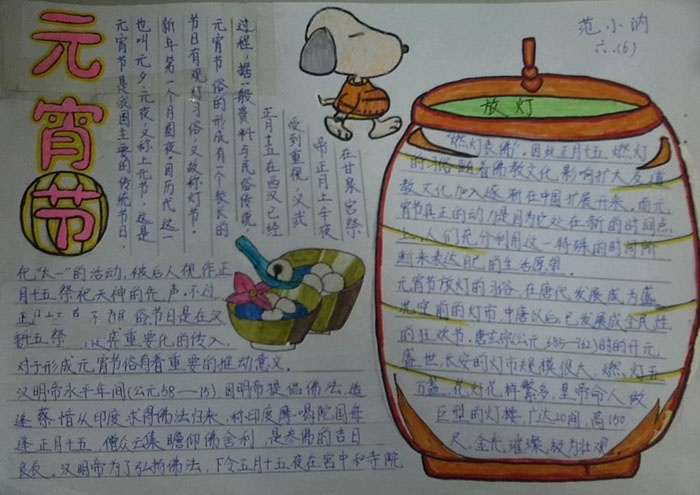 元宵节
元宵节是我国主要的传统节日，
也叫元夕、元夜，又称上元节，这是
新年第一个月圆夜。因历代这一
节日有观灯习俗，又故称灯节。
元宵节俗的形成有一个较长的
过程，据一般资料与民俗传说，
正月十五在西汉已经
受到重视，汉武
帝正月上辛夜
在甘泉宫祭
祀“太一”的活动，被后人视作正
月十五祭祀天神的先声。不过
正 俗节日是在汉
魏 重要化的传入，
对于形成元宵节俗有着重要的推动意义。
汉明帝永平年间（公元58—75）因明帝提倡佛法，适
逢蔡愔从印度求得佛法归来，称印度摩喝陀国每
逢正月十五，僧众云集瞻仰佛舍利，是参佛的吉日
良辰。汉明帝为了弘扬佛法，下令正月十五夜在宫中和寺院
范小汭
六.（6）
放灯
“燃灯表佛”。因此正月十五燃灯
的习俗随着佛教文化影响扩大及道
教文化加入逐渐在中国扩展开来。而元
宵节真正的动力是因为它处在新的时间点
上，人们充分利用这一特殊的时间阶
段来表达 的生活愿望。
元宵节放灯的习俗，在唐代发展成为盛
况空前的灯市，中唐以后，已发展成全民性
的狂欢节。唐玄宗（公元685—762）时的开元
盛世，长安的灯市规模很大，燃灯五
万盏，花灯花样繁多，皇帝命人做
巨型的灯楼，广达20间，高150
尺，金光璀璨，极为壮观